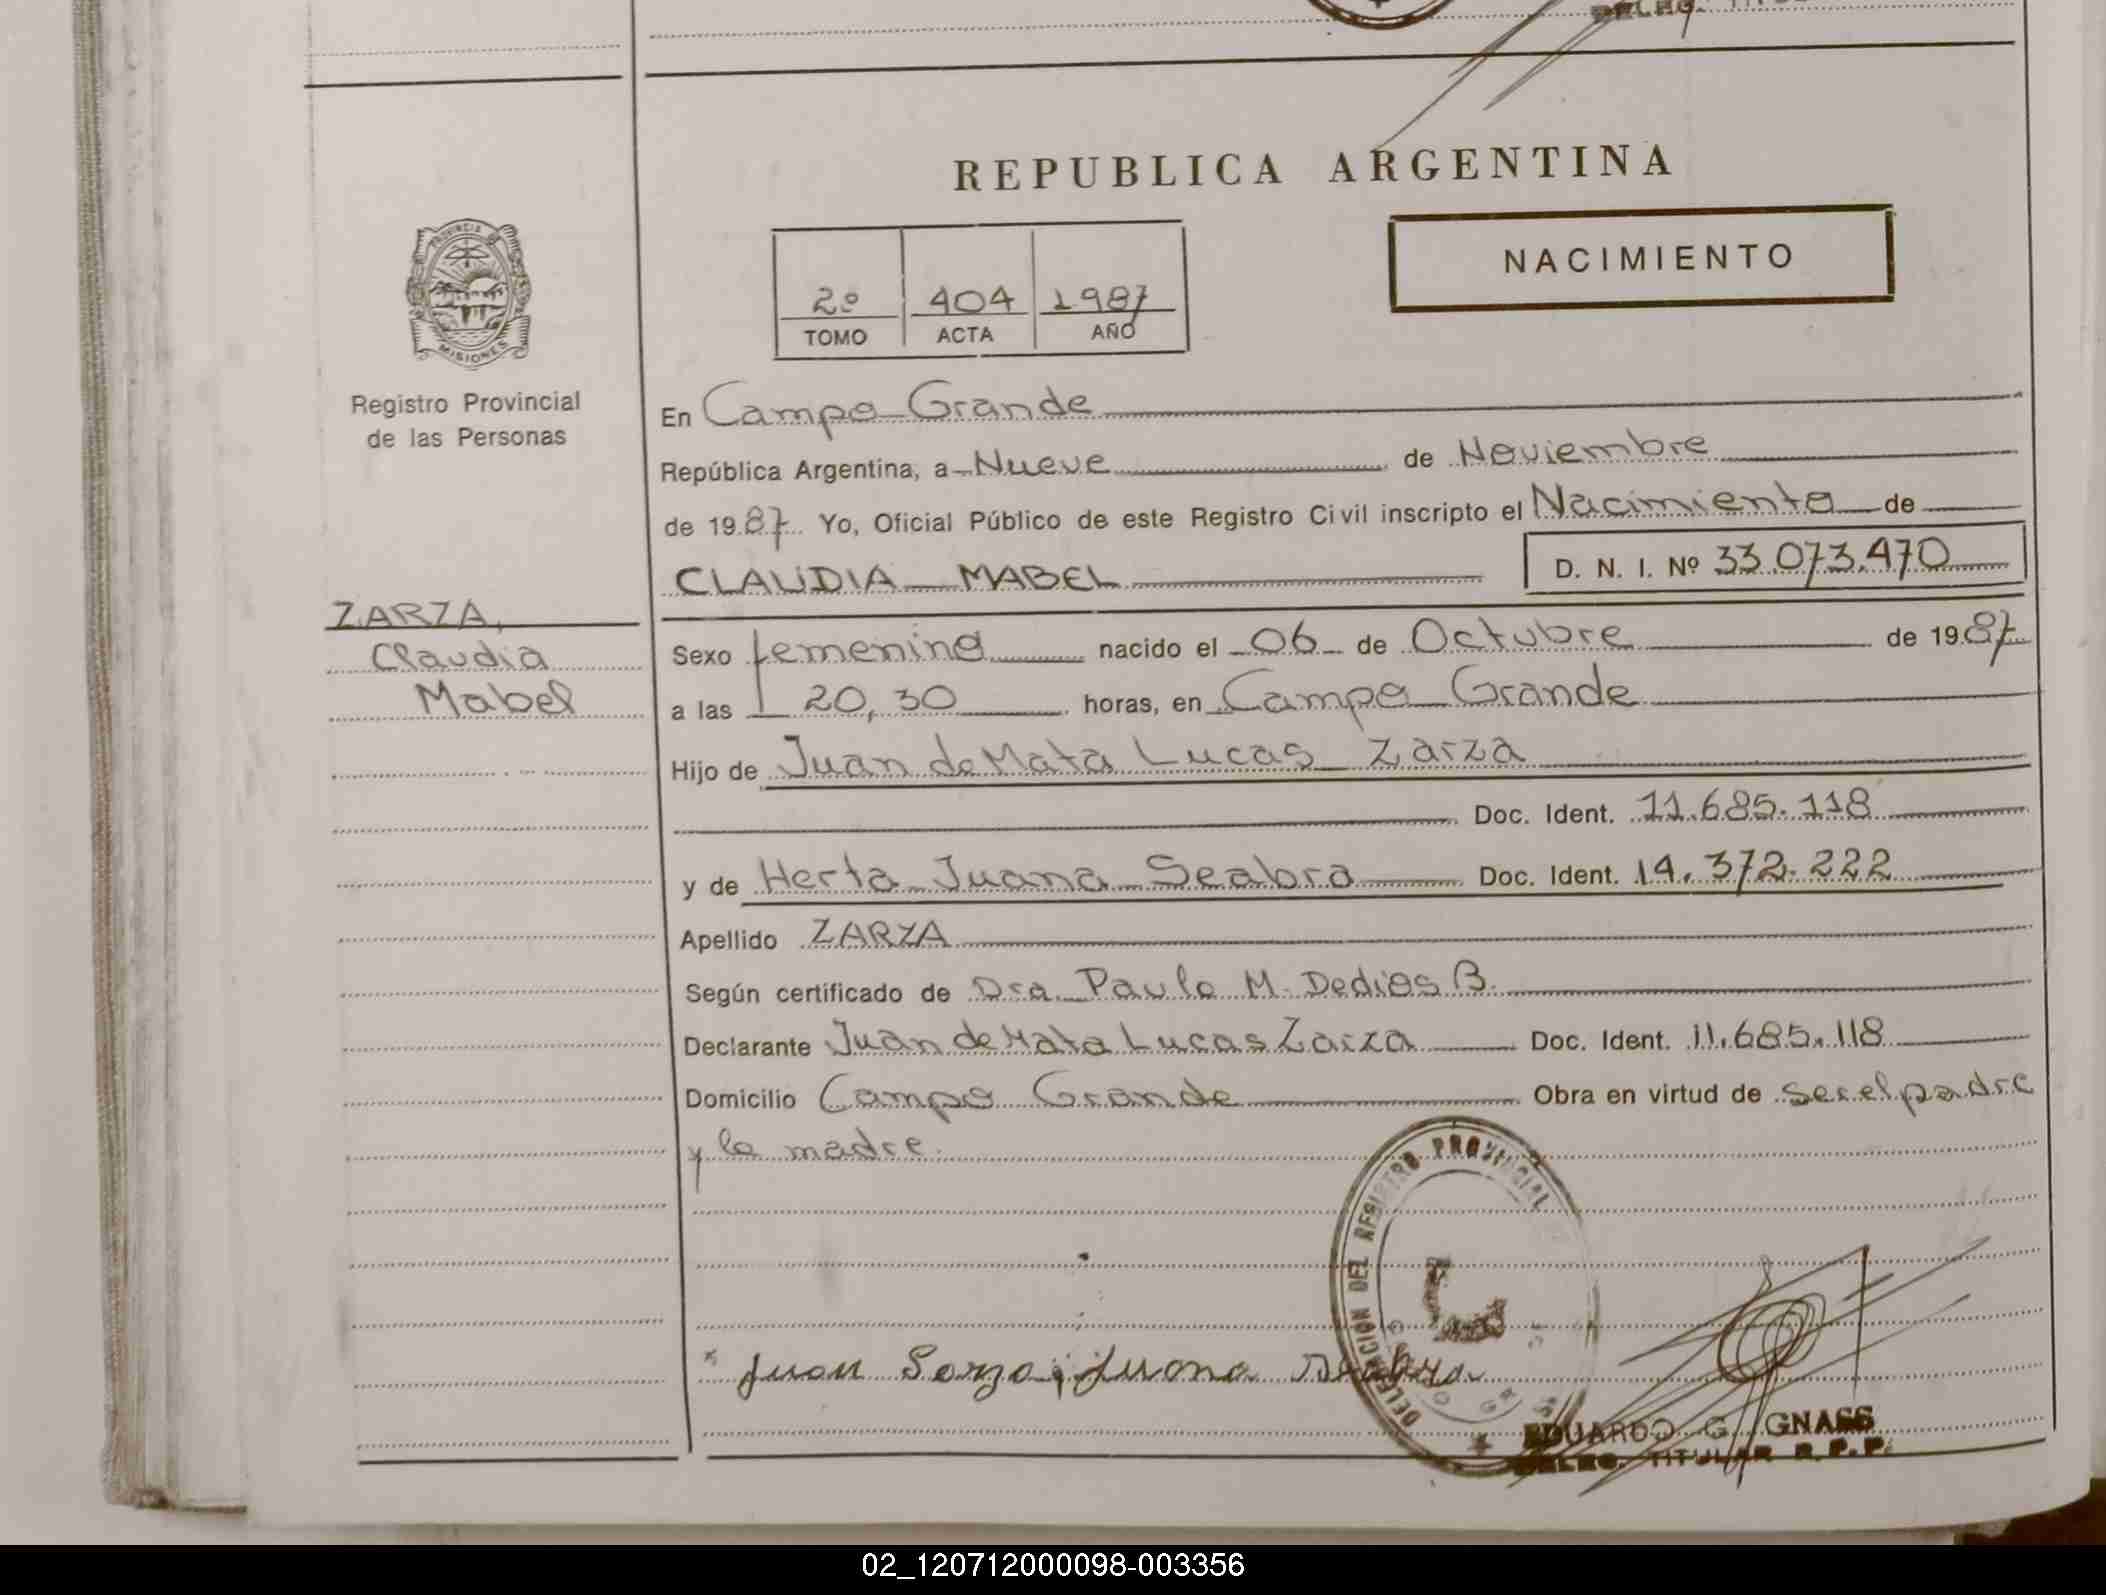 REPUBLICA ARGENTINA
NACIMIENTO
2º 404 1987
TOMO ACTA AÑO
PROVINCIA DE
MISIONES
Registro Provincial
de las Personas
ZARZA,
Claudia
Mabel
En Campo Grande
República Argentina, a Nueve de Noviembre
de 1987 Yo, Oficial Público de este Registro Civil inscripto el Nacimiento de
CLAUDIA MABEL D. N. I. Nº 33.073.470
Sexo femenino nacido el 06 de Octubre de 1987
a las 20,30 horas, en Campo Grande
Hijo de Juan de Mata Lucas Zarza
Doc. Ident. 11.685.118
y de Herta Juana Seabra Doc. Ident. 14.372.222
Apellido ZARZA
Según certificado de Dra Paulo M. Dedios B.
Declarante Juan de Mata Lucas Zarza Doc. Ident. 11.685.118
Domicilio Campo Grande Obra en virtud de ser el padre
y la madre.
DELEGACION DEL REGISTRO PROVINCIAL
Juan Sarza Juana
EDUARDO G. GNASS
DELEG. TITULAR R. P. P.
02_120712000098-003356